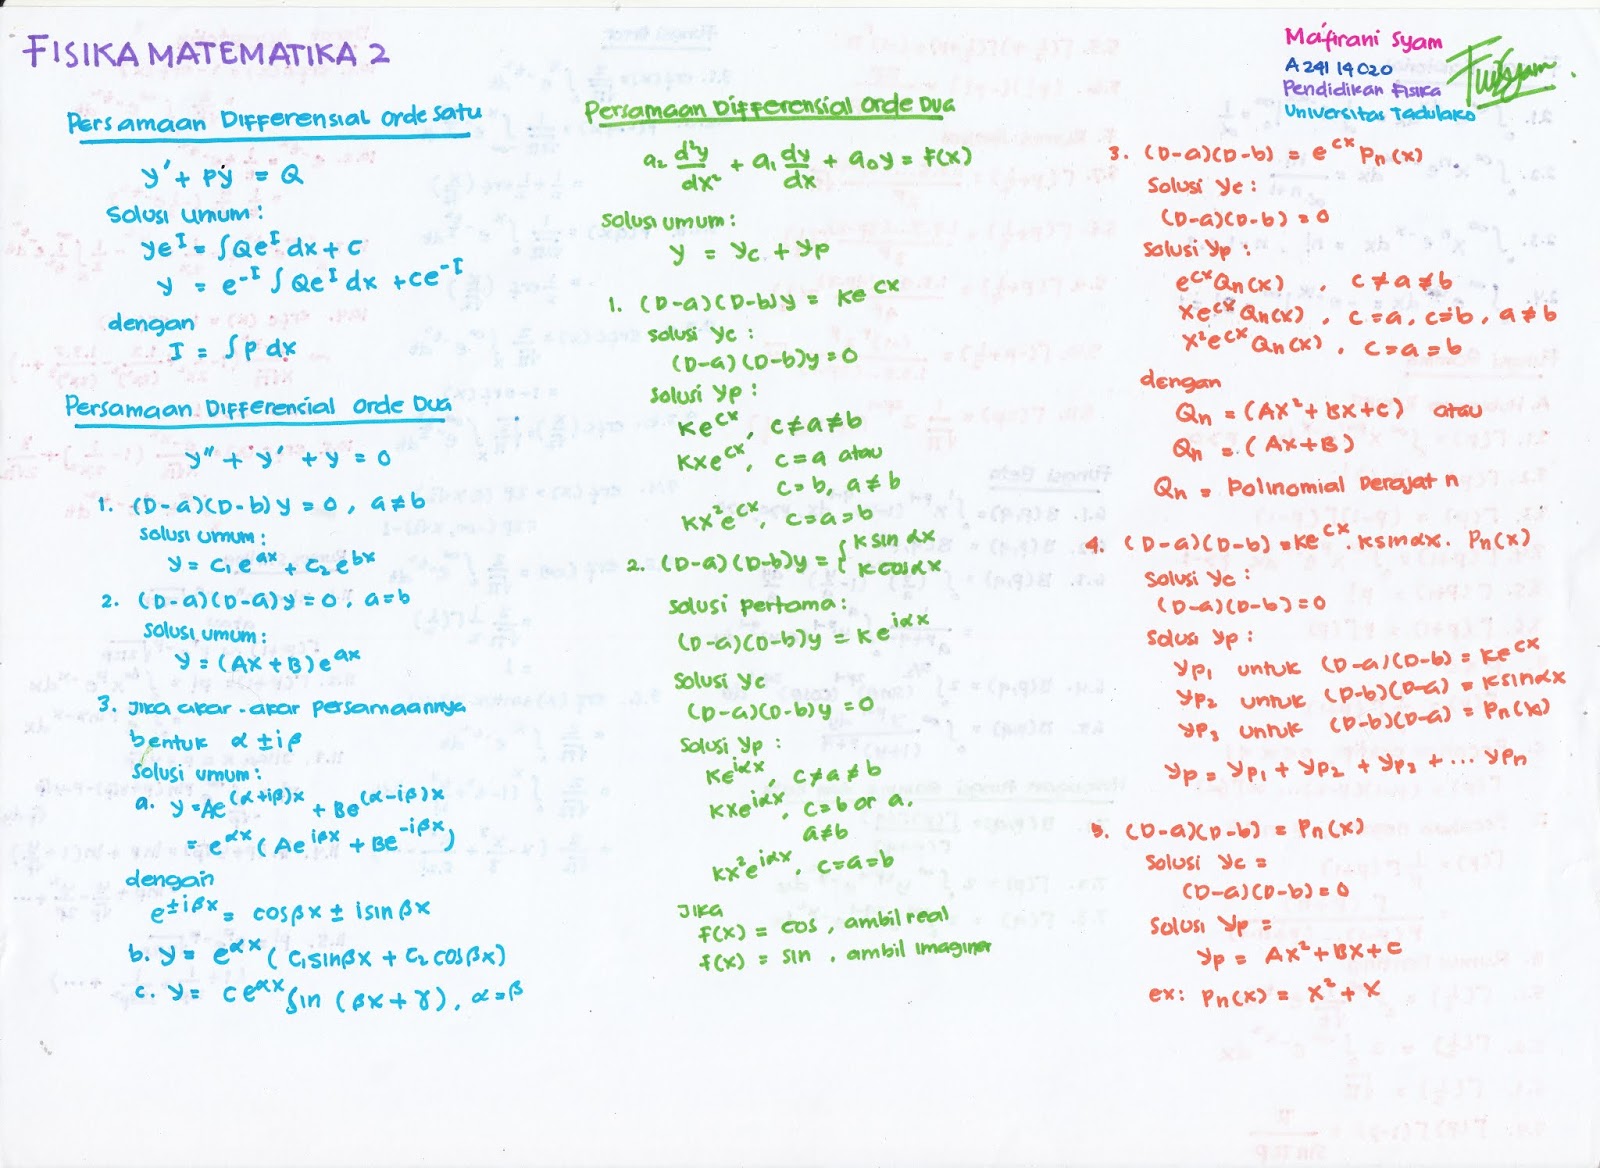 FISIKA MATEMATIKA 2
Persamaan Differensial Orde Satu
y' + Py = Q
Solusi umum:
ye^I = ∫Qe^I dx + C
y = e^-I ∫Qe^I dx + ce^-I
dengan
I = ∫P dx
Persamaan Differencial Orde Dua
y'' + y' + y = 0
1. (D-a)(D-b)y = 0, a≠b
solusi umum:
y = C₁e^ax + C₂e^bx
2. (D-a)(D-a)y = 0, a=b
solusi umum:
y = (Ax + B)e^ax
3. Jika akar-akar persamaannya
bentuk α ± iβ
Solusi umum:
a. y = Ae^(α+iβ)x + Be^(α-iβ)x
= e^αx (Ae^iβx + Be^-iβx)
dengan
e^±iβx = cosβx ± isinβx
b. y = e^αx (C₁sinβx + C₂cosβx)
c. y = Ce^αx sin (βx + γ), α=β
Persamaan Differensial Orde Dua
a₂ d²y/dx² + a₁ dy/dx + a₀y = f(x)
solusi umum:
y = yc + yp
1. (D-a)(D-b)y = Ke^cx
solusi yc:
(D-a)(D-b)y=0
solusi yp:
Ke^cx, c≠a≠b
Kxe^cx, c=a atau
c=b, a≠b
Kx²e^cx, c=a=b
2. (D-a)(D-b)y = { K sin αx
K cos αx
solusi pertama:
(D-a)(D-b)y = Ke^iαx
solusi yc
(D-a)(D-b)y = 0
solusi yp:
Ke^iαx, c≠a≠b
Kxe^iαx, c=b or a,
a≠b
Kx²e^iαx, c=a=b
Jika
f(x) = cos, ambil real
f(x) = sin, ambil imaginer
Mafirani Syam
A 241 14 020
Pendidikan Fisika
Universitas Tadulako
3. (D-a)(D-b) = e^cx Pn(x)
Solusi yc:
(D-a)(D-b)=0
solusi yp:
e^cx Qn(x), c≠a≠b
xe^cx Qn(x), c=a, c=b, a≠b
x²e^cx Qn(x), c=a=b
dengan
Qn = (Ax²+Bx+C) atau
Qn = (Ax+B)
Qn = Polinomial Derajat n
4. (D-a)(D-b)=Ke^cx. Ksinαx. Pn(x)
Solusi yc:
(D-a)(D-b)=0
Solusi yp:
yp₁ untuk (D-a)(D-b) = Ke^cx
yp₂ untuk (D-b)(D-a) = Ksinαx
yp₃ untuk (D-b)(D-a) = Pn(x)
yp = yp₁ + yp₂ + yp₃ + ... ypn
5. (D-a)(D-b) = Pn(x)
Solusi yc =
(D-a)(D-b)=0
Solusi yp =
yp = Ax²+Bx+C
ex: Pn(x) = x² + x